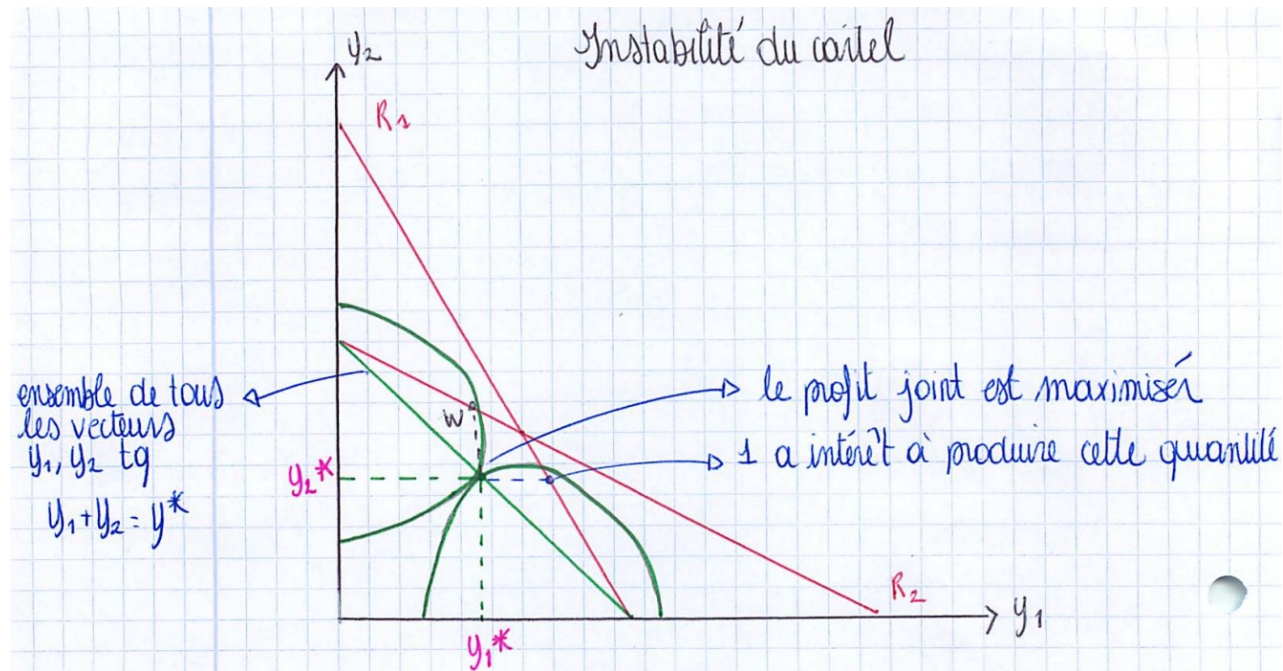 Instabilité du cartel
y₂
R₁
ensemble de tous
les vecteurs
y₁, y₂ tq
y₁+y₂ = y*
W
le profit joint est maximisér
1 a intérêt à produire cette quantité
y₂*
R₂
y₁
y₁*